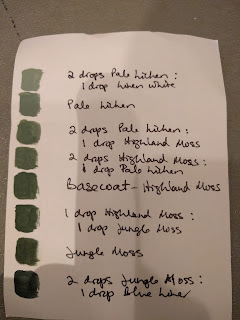 2 drops Pale Lichen :
1 drop Linen White
Pale Lichen
2 drops Pale Lichen :
1 drop Highland Moss
2 drops Highland Moss :
1 drop Pale Lichen
Basecoat - Highland Moss
1 drop Highland Moss :
1 drop Jungle Moss
Jungle Moss
2 drops Jungle Moss :
1 drop Blue Liner